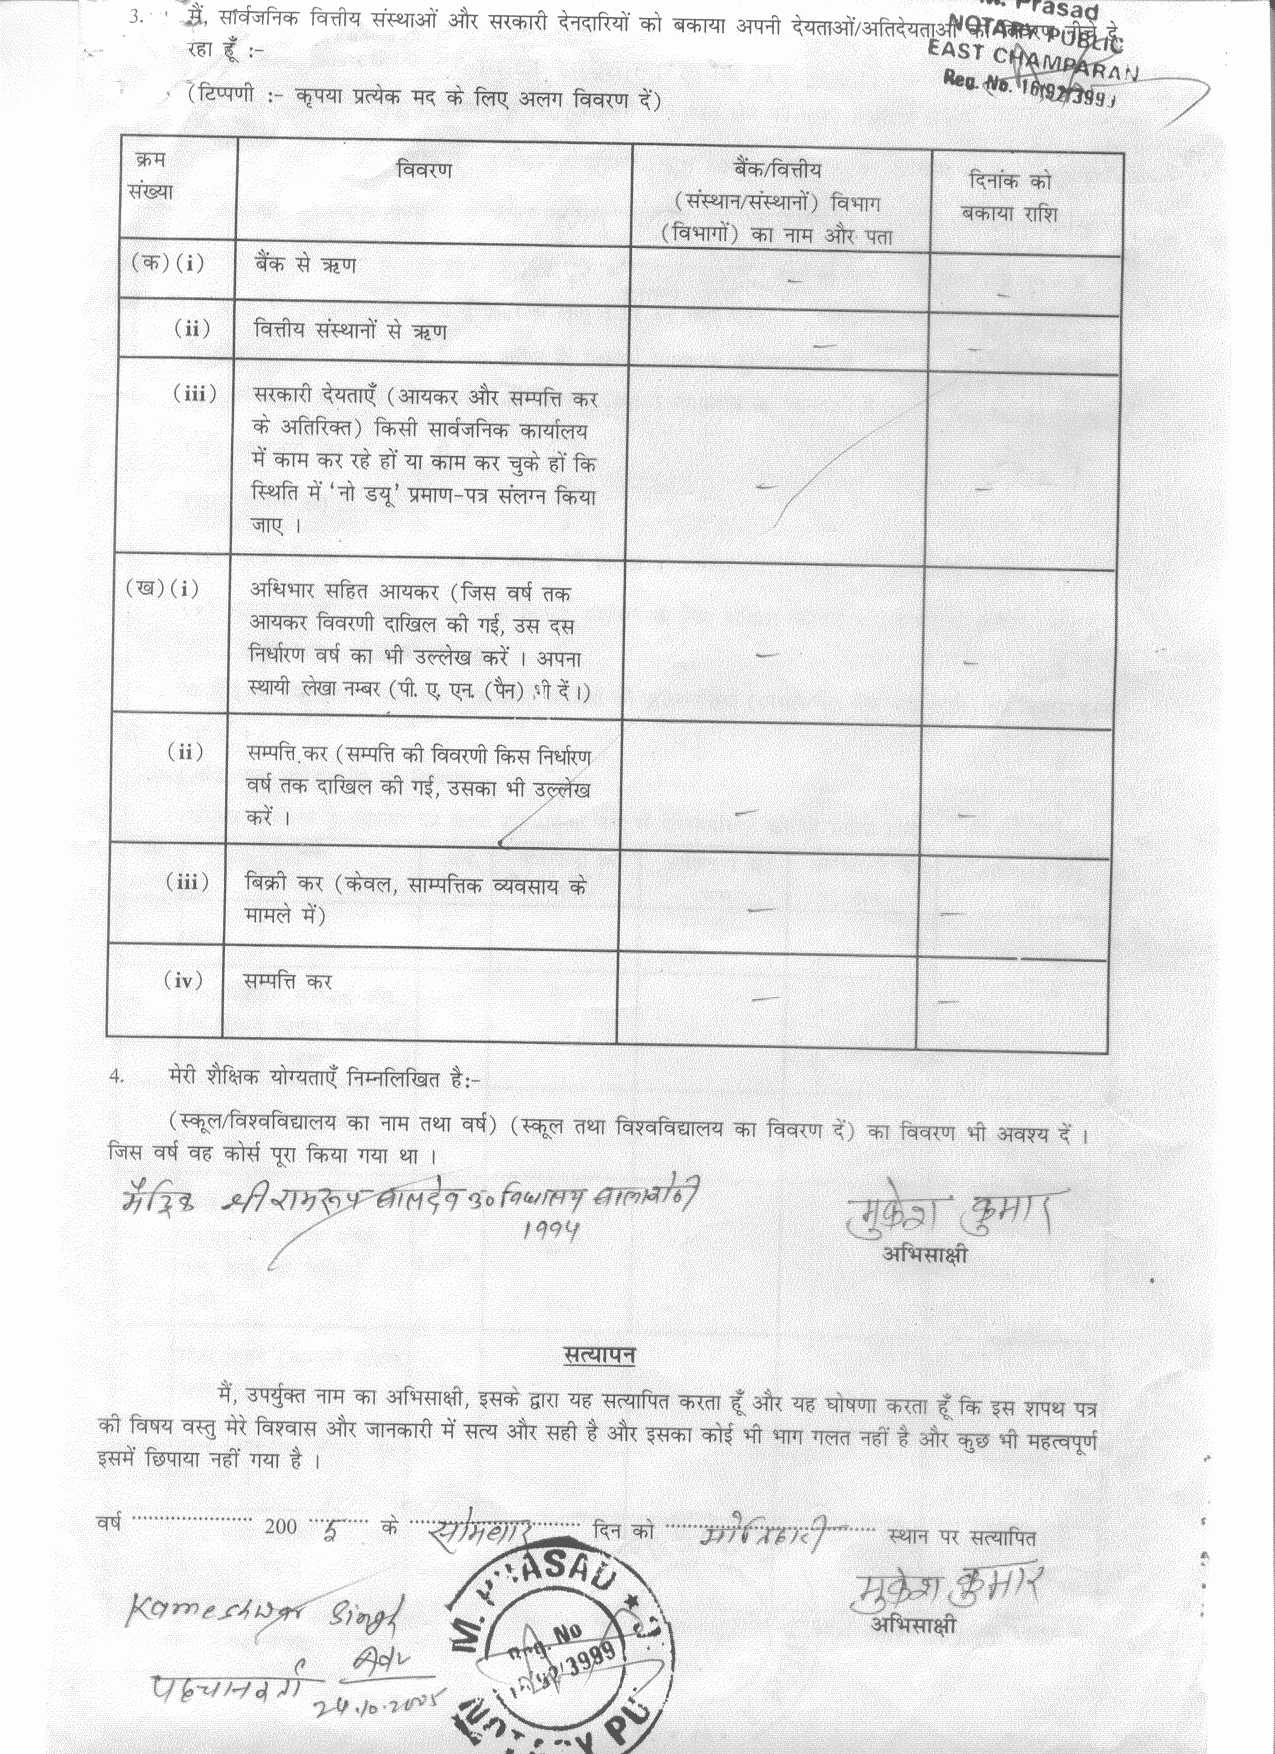 M. Prasad
NOTARY PUBLIC
EAST CHAMPARAN
Reg. No.
3. मैं, सार्वजनिक वित्तीय संस्थाओं और सरकारी देनदारियों को बकाया अपनी देयताओं/अतिदेयताओं का विवरण नीचे दे
रहा हूँ :-
(टिप्पणी :- कृपया प्रत्येक मद के लिए अलग विवरण दें)
क्रम
संख्या
विवरण
बैंक/वित्तीय
(संस्थान/संस्थानों) विभाग
(विभागों) का नाम और पता
दिनांक को
बकाया राशि
(क)(i) बैंक से ऋण – –
(ii) वित्तीय संस्थानों से ऋण – –
(iii) सरकारी देयताएँ (आयकर और सम्पत्ति कर
के अतिरिक्त) किसी सार्वजनिक कार्यालय
में काम कर रहे हों या काम कर चुके हों कि
स्थिति में ‘नो डयू’ प्रमाण-पत्र संलग्न किया
जाए ।
– –
(ख)(i) अधिभार सहित आयकर (जिस वर्ष तक
आयकर विवरणी दाखिल की गई, उस दस
निर्धारण वर्ष का भी उल्लेख करें । अपना
स्थायी लेखा नम्बर (पी. ए. एन. (पैन) भी दें।)
– –
(ii) सम्पत्ति कर (सम्पत्ति की विवरणी किस निर्धारण
वर्ष तक दाखिल की गई, उसका भी उल्लेख
करें ।
– –
(iii) बिक्री कर (केवल, साम्पत्तिक व्यवसाय के
मामले में)
– –
(iv) सम्पत्ति कर – –
4. मेरी शैक्षिक योग्यताएँ निम्नलिखित है:-
(स्कूल/विश्वविद्यालय का नाम तथा वर्ष) (स्कूल तथा विश्वविद्यालय का विवरण दें) का विवरण भी अवश्य दें ।
जिस वर्ष वह कोर्स पूरा किया गया था ।
मैट्रिक श्री रामरूप बालदेव उ० विद्यालय
१९९५
मुकेश कुमार
अभिसाक्षी
सत्यापन
मैं, उपर्युक्त नाम का अभिसाक्षी, इसके द्वारा यह सत्यापित करता हूँ और यह घोषणा करता हूँ कि इस शपथ पत्र
की विषय वस्तु मेरे विश्वास और जानकारी में सत्य और सही है और इसका कोई भी भाग गलत नहीं है और कुछ भी महत्वपूर्ण
इसमें छिपाया नहीं गया है ।
वर्ष .................... 200 5 के सोमवार दिन को मोतिहारी स्थान पर सत्यापित
मुकेश कुमार
अभिसाक्षी
Kameshwar Singh
पहचानकर्ता
24.10.2005
M. PRASAD ★
Reg. No
3999
NOTARY PU